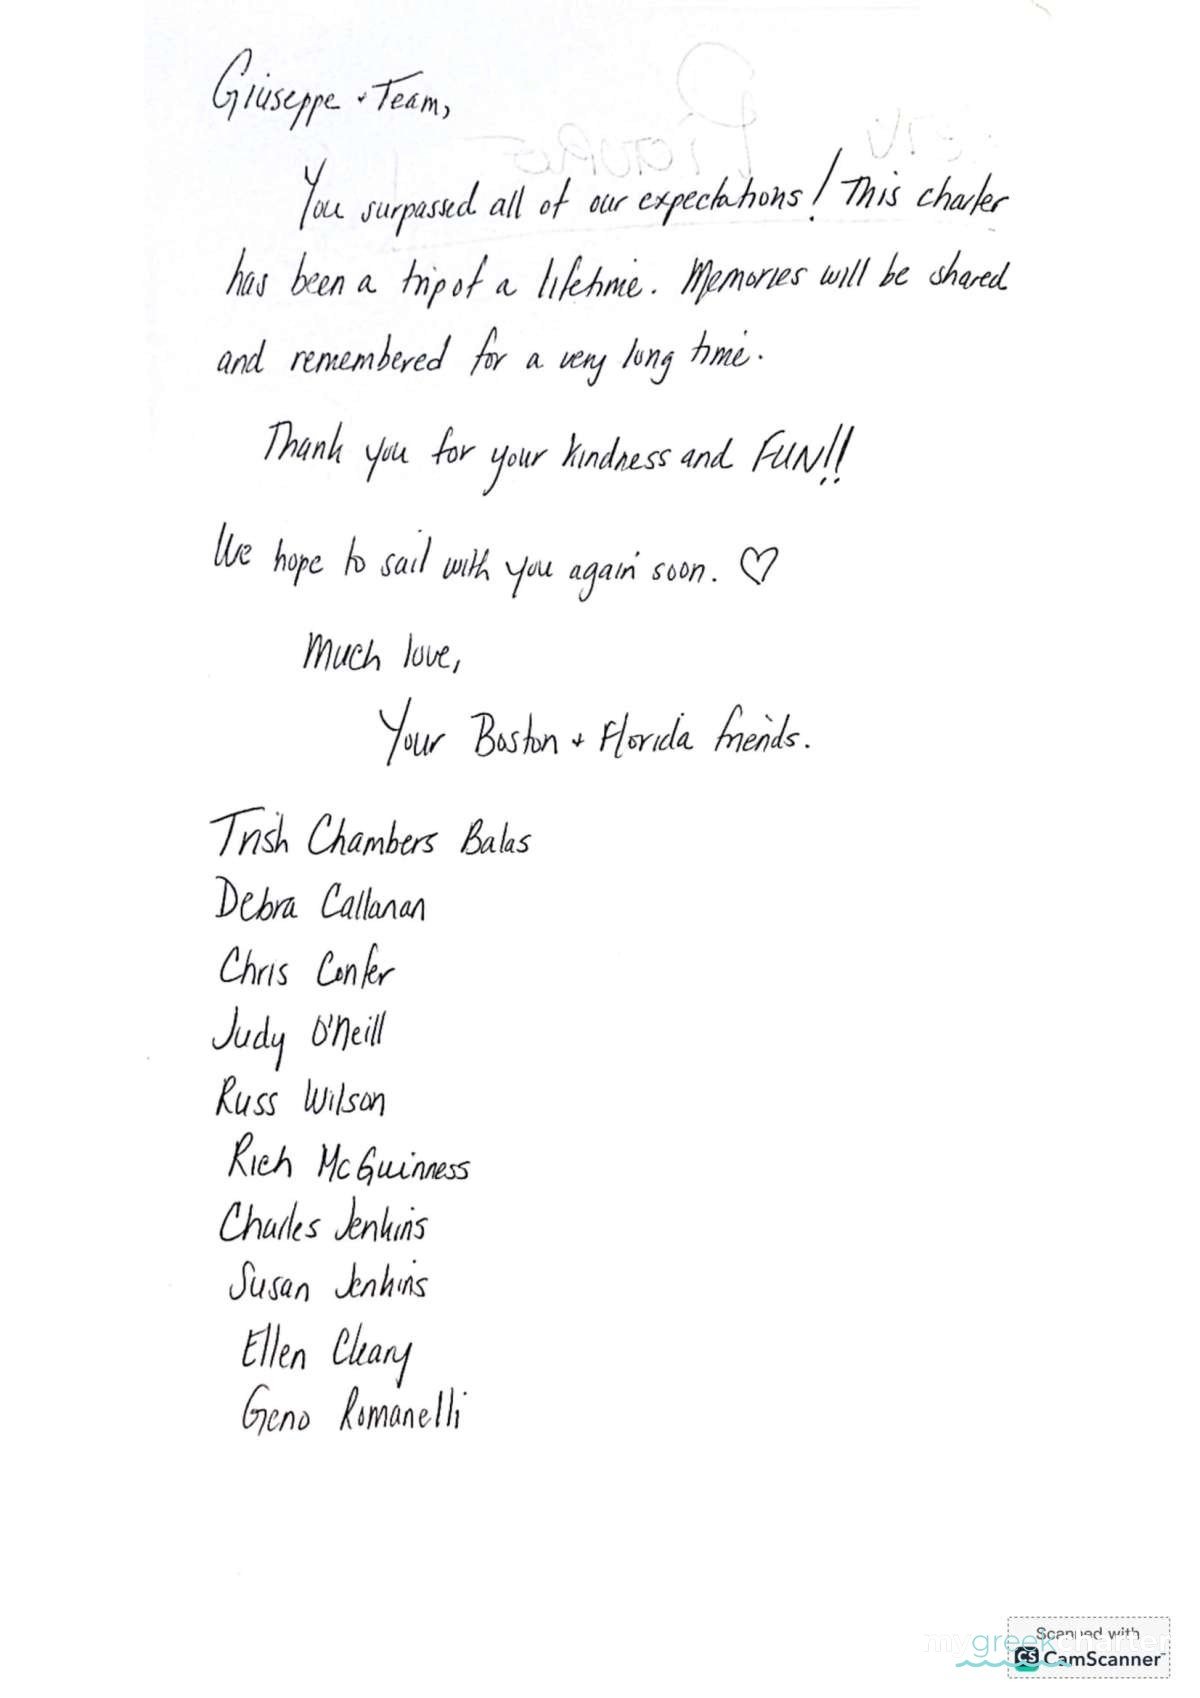 Giuseppe + Team,
You surpassed all of our expectations! This charter
has been a trip of a lifetime. Memories will be shared
and remembered for a very long time.
Thank you for your kindness and FUN!!
We hope to sail with you again soon. ♡
Much love,
Your Boston + Florida friends.
Trish Chambers Balas
Debra Callanan
Chris Confer
Judy O'Neill
Russ Wilson
Rich McGuinness
Charles Jenkins
Susan Jenkins
Ellen Cleary
Geno Romanelli
Scanned with
mygreekcharter
CS CamScanner